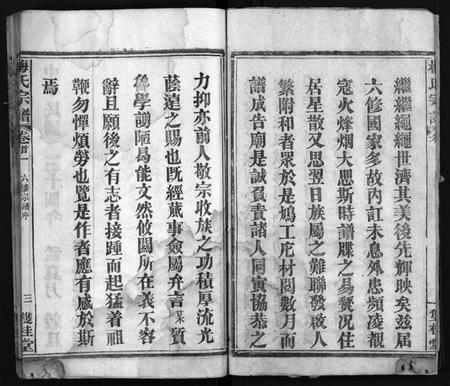 繼繼繩繩世濟其美後先輝映矣茲屆
六修國家多故內訌未息外患頻凌覩
寇火烽烟大思斯時譜牒之易燹況住
居星散又思翌日族屬之難聯發啟人
繁附和者眾於是鳩工庀材閱數月而
譜成告廟是誠負責諸人同寅協恭之
力抑亦前人敬宗收族之功積厚流光
蔭遠之賜也既經蕆事僉屬弁言某質
魯學譾陋曷能文然攸關所在義不容
辭且願後之有志者接踵而起猛着祖
鞭勿憚煩勞也覽是作者應有感於斯
焉
梅氏宗譜
卷首一
六修宗譜序
三
雙桂堂